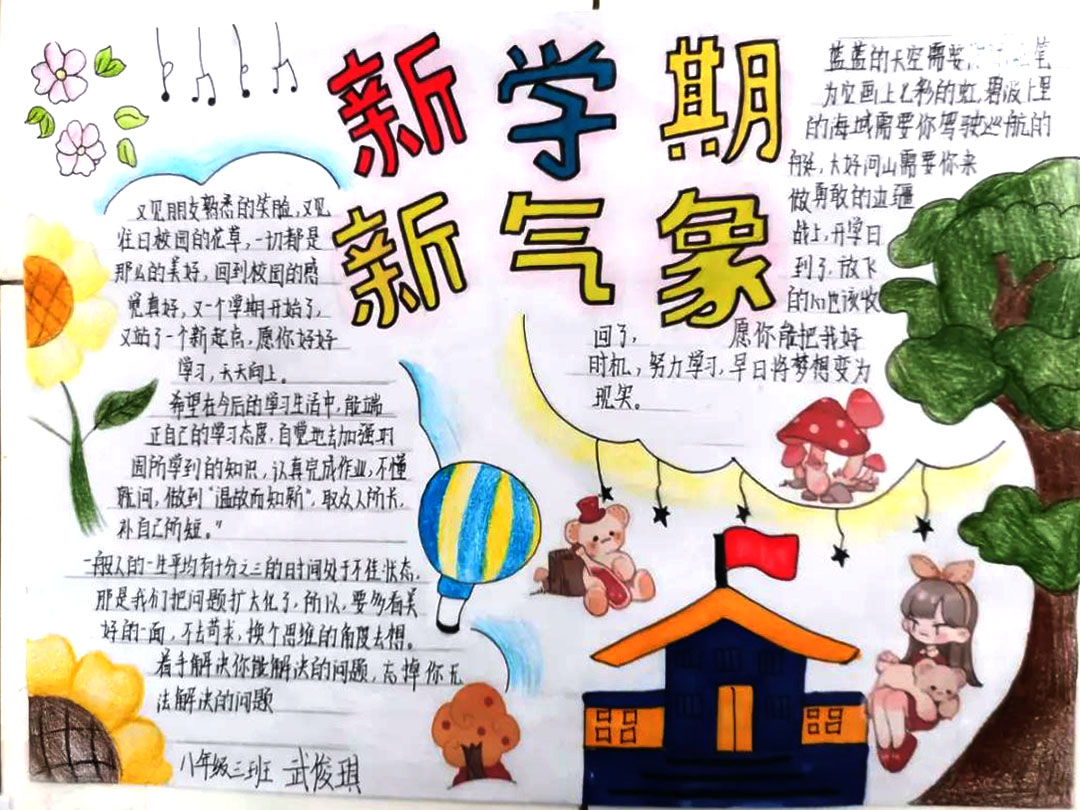 新学期
新气象
又见朋友熟悉的笑脸,又见
往日校园的花草,一切都是
那么的美好,回到校园的感
觉真好,又一个学期开始了,
又站了一个新起点,愿你好好
学习,天天向上。
希望在今后的学习生活中,能端
正自己的学习态度,自觉地去加强
固所学到的知识,认真完成作业,不懂
就问,做到“温故而知新”,取众人所长,
补自己所短。”
一般人的一生平均有十分之三的时间处于不佳状态,
那是我们把问题扩大化了,所以,要多看美
好的一面,不去苛求,换个思维的角度去想。
着手解决你能解决的问题,忘掉你无
法解决的问题
八年级三班 武俊琪
蓝蓝的天空需要 笔
为它画上七彩的虹,碧波万里
的海域需要你驾驶巡航的
大好河山需要你来
做勇敢的边疆
战士,开学日
到了,放飞
的心也该收
回了, 愿你能把我好
时机,努力学习,早日将梦想变为
现实。